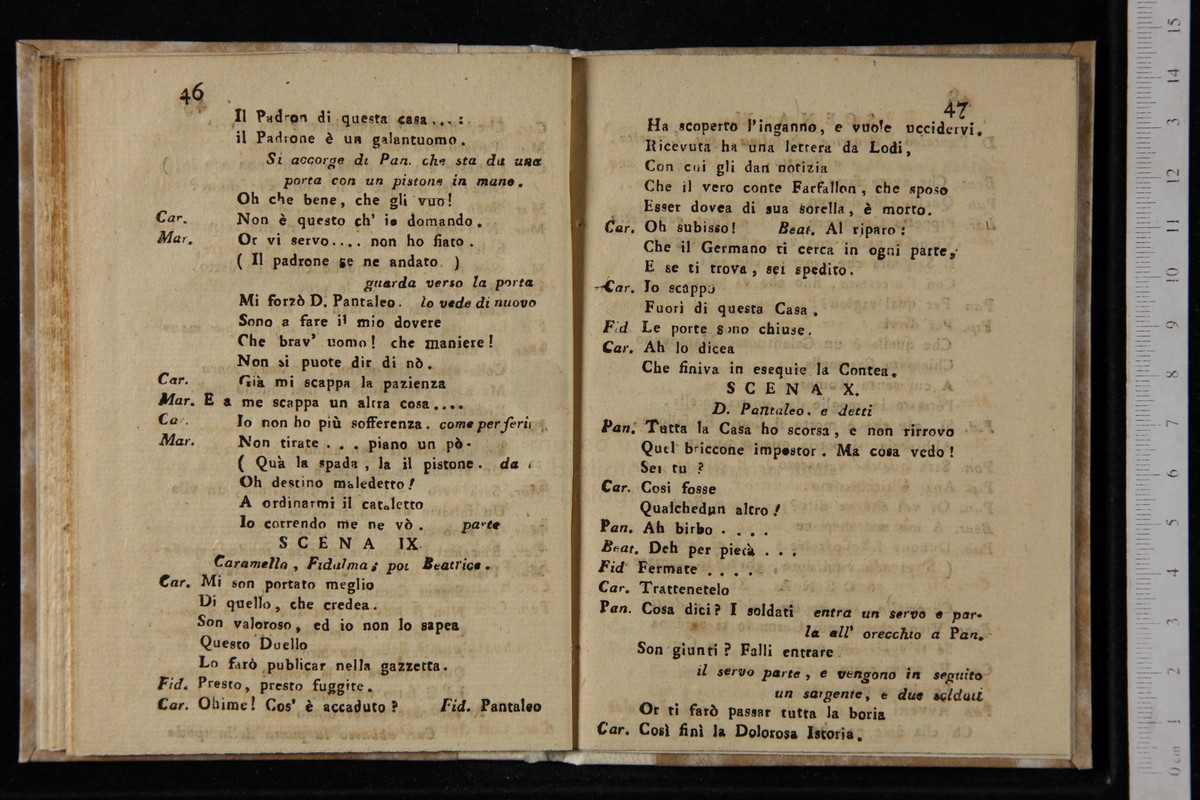 46
Il Padron di questa casa... :
il Padrone è un galantuomo.
Si accorge di Pan. che sta da una
porta con un pistone in mano.
Oh che bene, che gli vuo!
Car. Non è questo ch' io domando.
Mar. Or vi servo.... non ho fiato.
( Il padrone se ne andato. )
guarda verso la porta
Mi forzò D. Pantaleo. lo vede di nuovo
Sono a fare il mio dovere
Che brav' uomo! che maniere!
Non si puote dir di nò.
Car. Già mi scappa la pazienza
Mar. E a me scappa un altra cosa....
Ca. Io non ho più sofferenza. come per ferir
Mar. Non tirate ... piano un pò-
( Quà la spada, la il pistone. da
Oh destino maledetto!
A ordinarmi il cataletto
Io correndo me ne vò. parte
SCENA IX.
Caramella, Fidalma; poi Beatrice.
Car. Mi son portato meglio
Di quello, che credea.
Son valoroso, ed io non lo sapea
Questo Duello
Lo farò publicar nella gazzetta.
Fid. Presto, presto fuggite.
Car. Ohime! Cos' è accaduto? Fid. Pantaleo
47
Ha scoperto l'inganno, e vuole uccidervi.
Ricevuta ha una lettera da Lodi,
Con cui gli dan notizia
Che il vero conte Farfallon, che sposo
Esser dovea di sua sorella, è morto.
Car. Oh subisso! Beat. Al riparo:
Che il Germano ti cerca in ogni parte,
E se ti trova, sei spedito.
Car. Io scappo
Fuori di questa Casa.
Fid. Le porte sono chiuse.
Car. Ah lo dicea
Che finiva in esequie la Contea.
SCENA X.
D. Pantaleo. e detti
Pan. Tutta la Casa ho scorsa, e non rirrovo
Quel briccone impostor. Ma cosa vedo!
Sei tu ?
Car. Cosi fosse
Qualchedun altro!
Pan. Ah birbo ....
Beat. Deh per pietà ...
Fid Fermate ....
Car. Trattenetelo
Pan. Cosa dici? I soldati entra un servo e par-
la all' orecchio a Pan.
Son giunti? Falli entrare
il servo parte, e vengono in seguito
un sargente, e due soldati
Or ti farò passar tutta la boria
Car. Così finì la Dolorosa Istoria.
0 cm 1 2 3 4 5 6 7 8 9 10 11 12 3 14 15